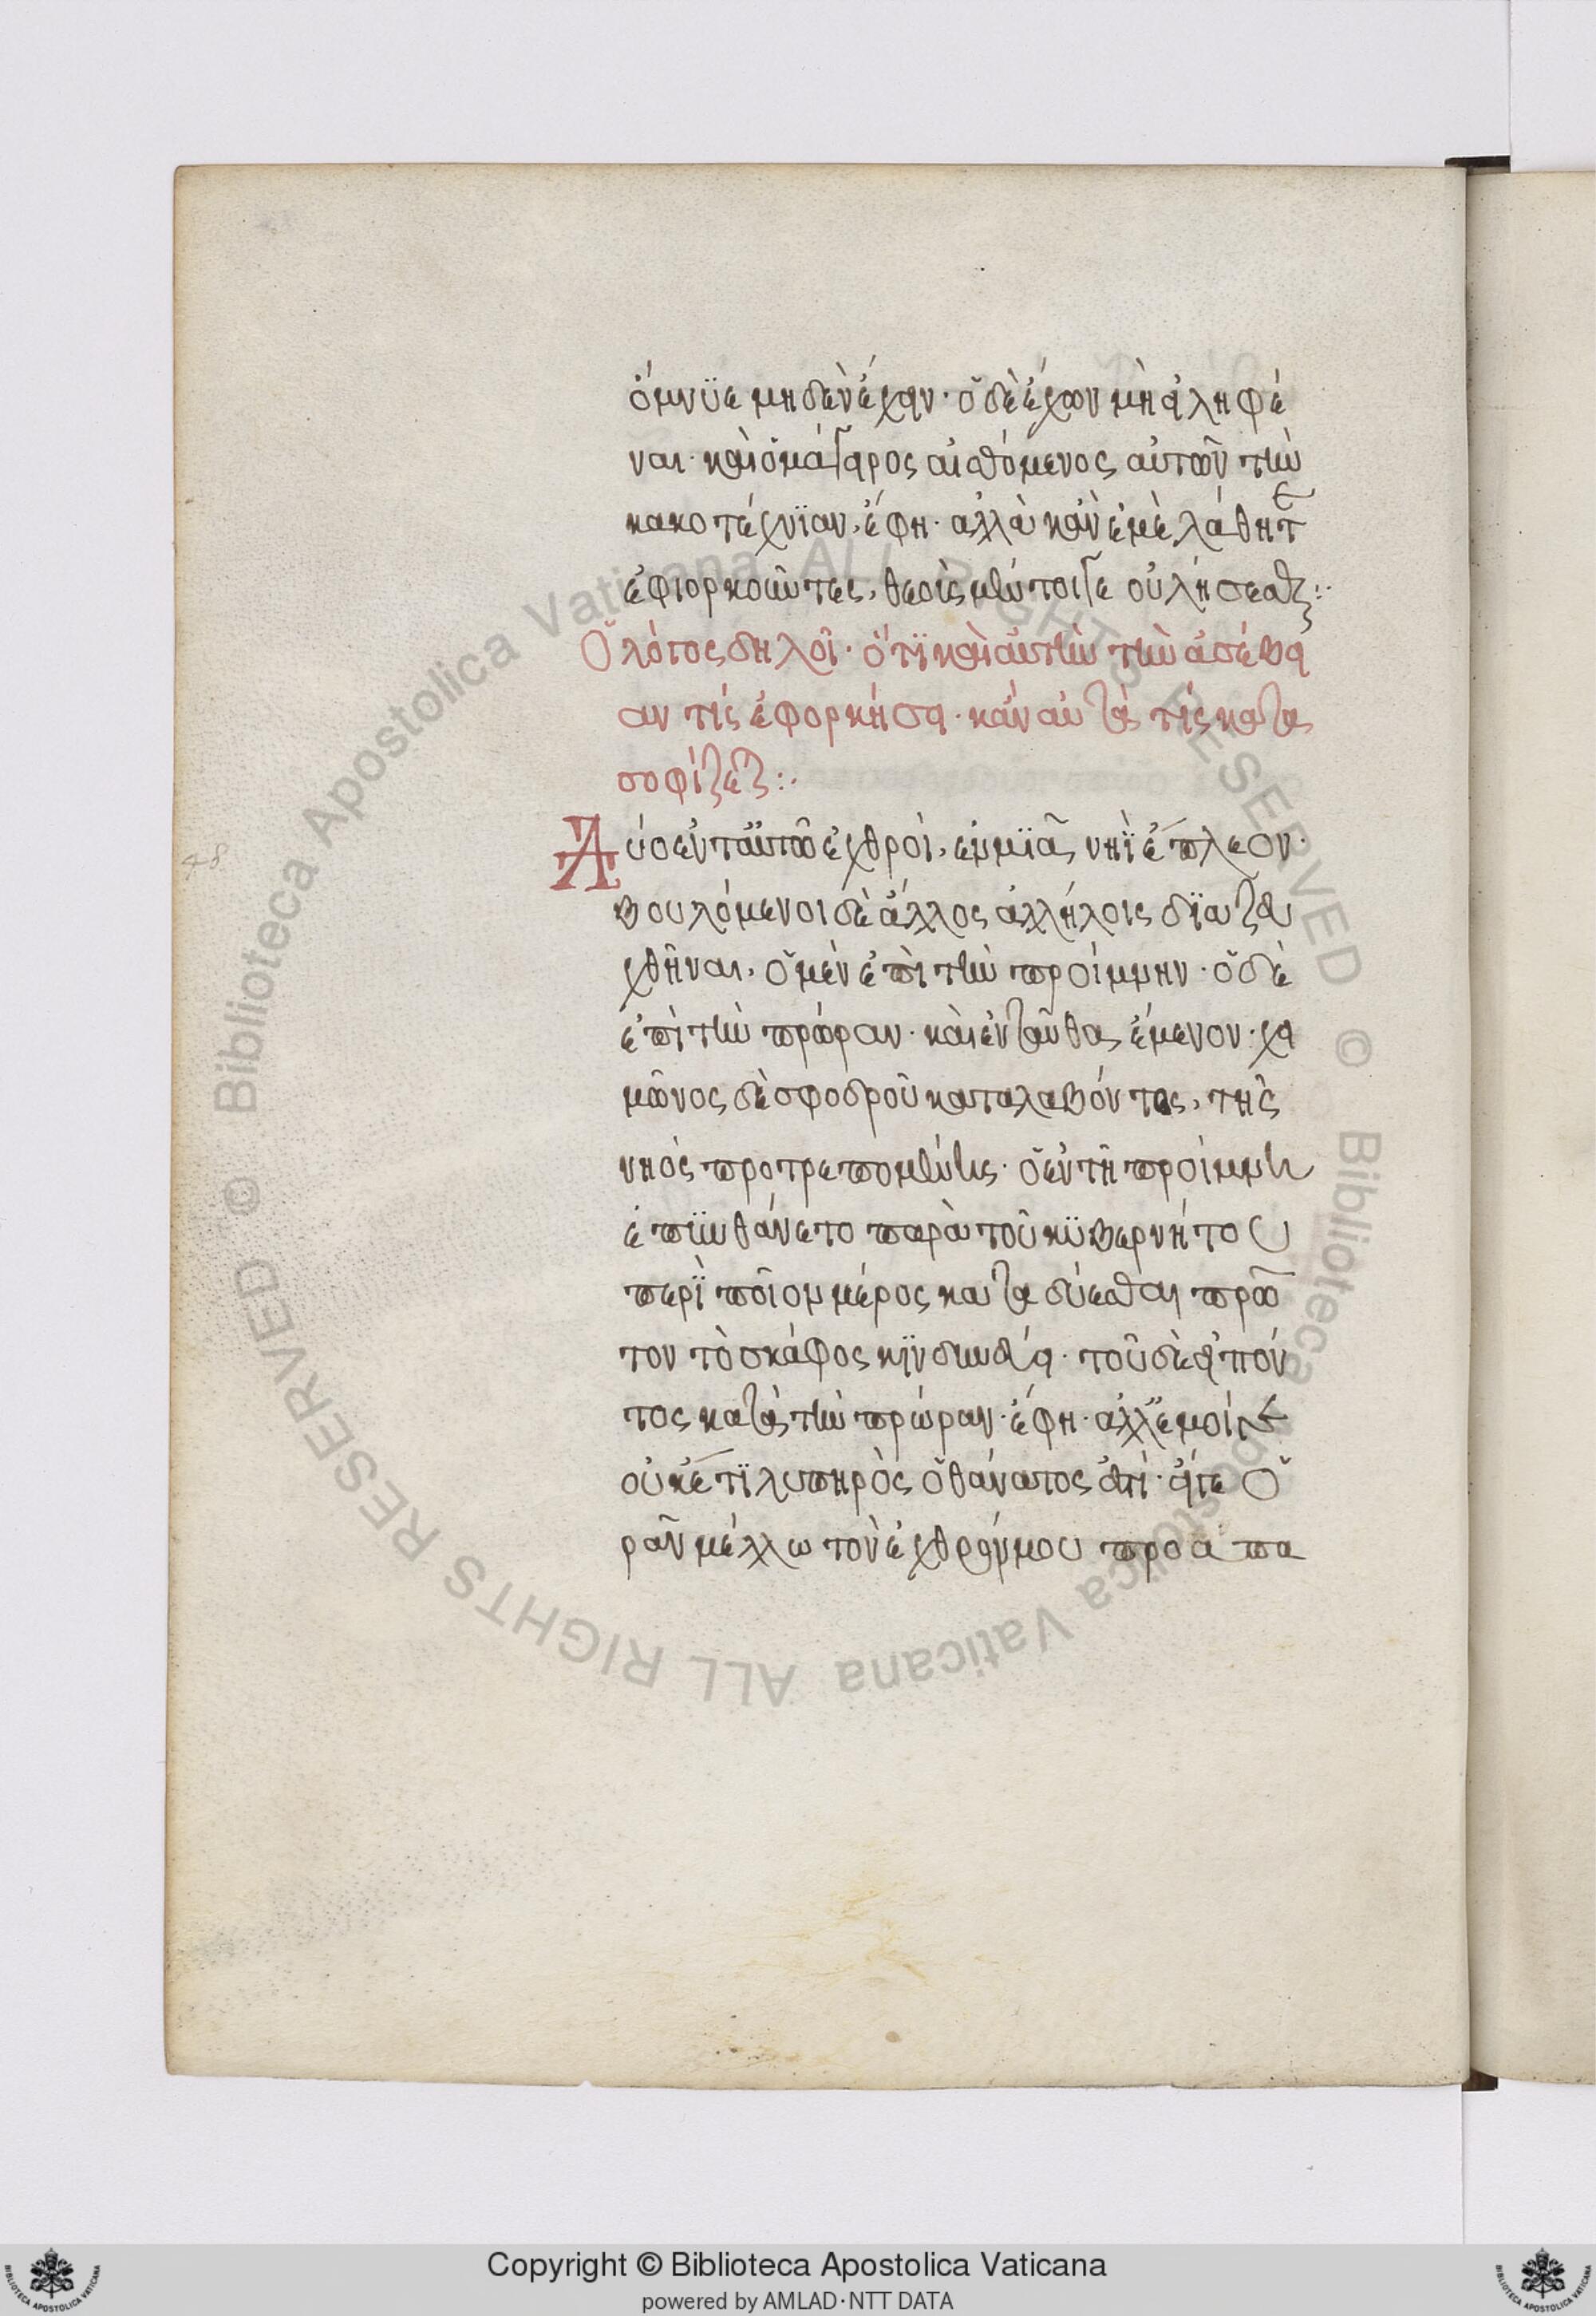 ὄμνϋε μηδὲν ἔχειν· ὁ δὲ ἔχων μὴ εἰληφέ
ναι· καὶ ὁ μάγειρος αἰσθόμενος αὐτῶν τὴν
κακοτέχνϊαν, ἔφη· ἀλλὰ κἂν ἐμὲ λάθητε
ἐφιορκοῦντες, θεοὺς μέντοιγε οὐ λήσεσθε:·
Ὁ λόγος δηλοῖ· ὅτϊ καὶ αὐτὴν τὴν ἀσέβει
αν τίς ἐφορκήσει· κἂν αὐτὰ τίς κατα
σοφίζεται:·
Δύο ἐν ταὐτῶ ἐχθροὶ, ἐμμϊᾶ νηῒ ἔπλεον·
βουλόμενοι δὲ ἄλλος ἀλλήλοις δϊαζευ
χθῆναι, ὁ μὲν ἐπὶ τὴν προίμμην· ὁ δὲ
ἐπὶ τὴν πρώραν· καὶ ἐνταῦθα ἔμενον· χει
μῶνος δὲ σφοδροῦ καταλαβόντος, τῆς
νηὸς προτρεπομένης· ὁ ἐν τῆ προίμμη
ἐπϋνθάνετο παρὰ τοῦ κϋβερνήτου
περῒ ποῖομ μέρος καταδύεσθαι πρῶ
τον τὸ σκάφος κϊνδυνεύει· τοῦ δὲ εἰπόν
τος κατὰ τὴν πρώραν· ἔφη· ἀλλ' ἔμοίγε
οὐκέτϊ λυπηρὸς ὁ θάνατος ἐστί· εἴγε ὁ
ρᾶν μέλλω τὸν ἐχθρόν μου προαπο
48
Copyright © Biblioteca Apostolica Vaticana
powered by AMLAD·NTT DATA
© Biblioteca Apostolica Vaticana ALL RIGHTS RESERVED
© Biblioteca Apostolica Vaticana ALL RIGHTS RESERVED